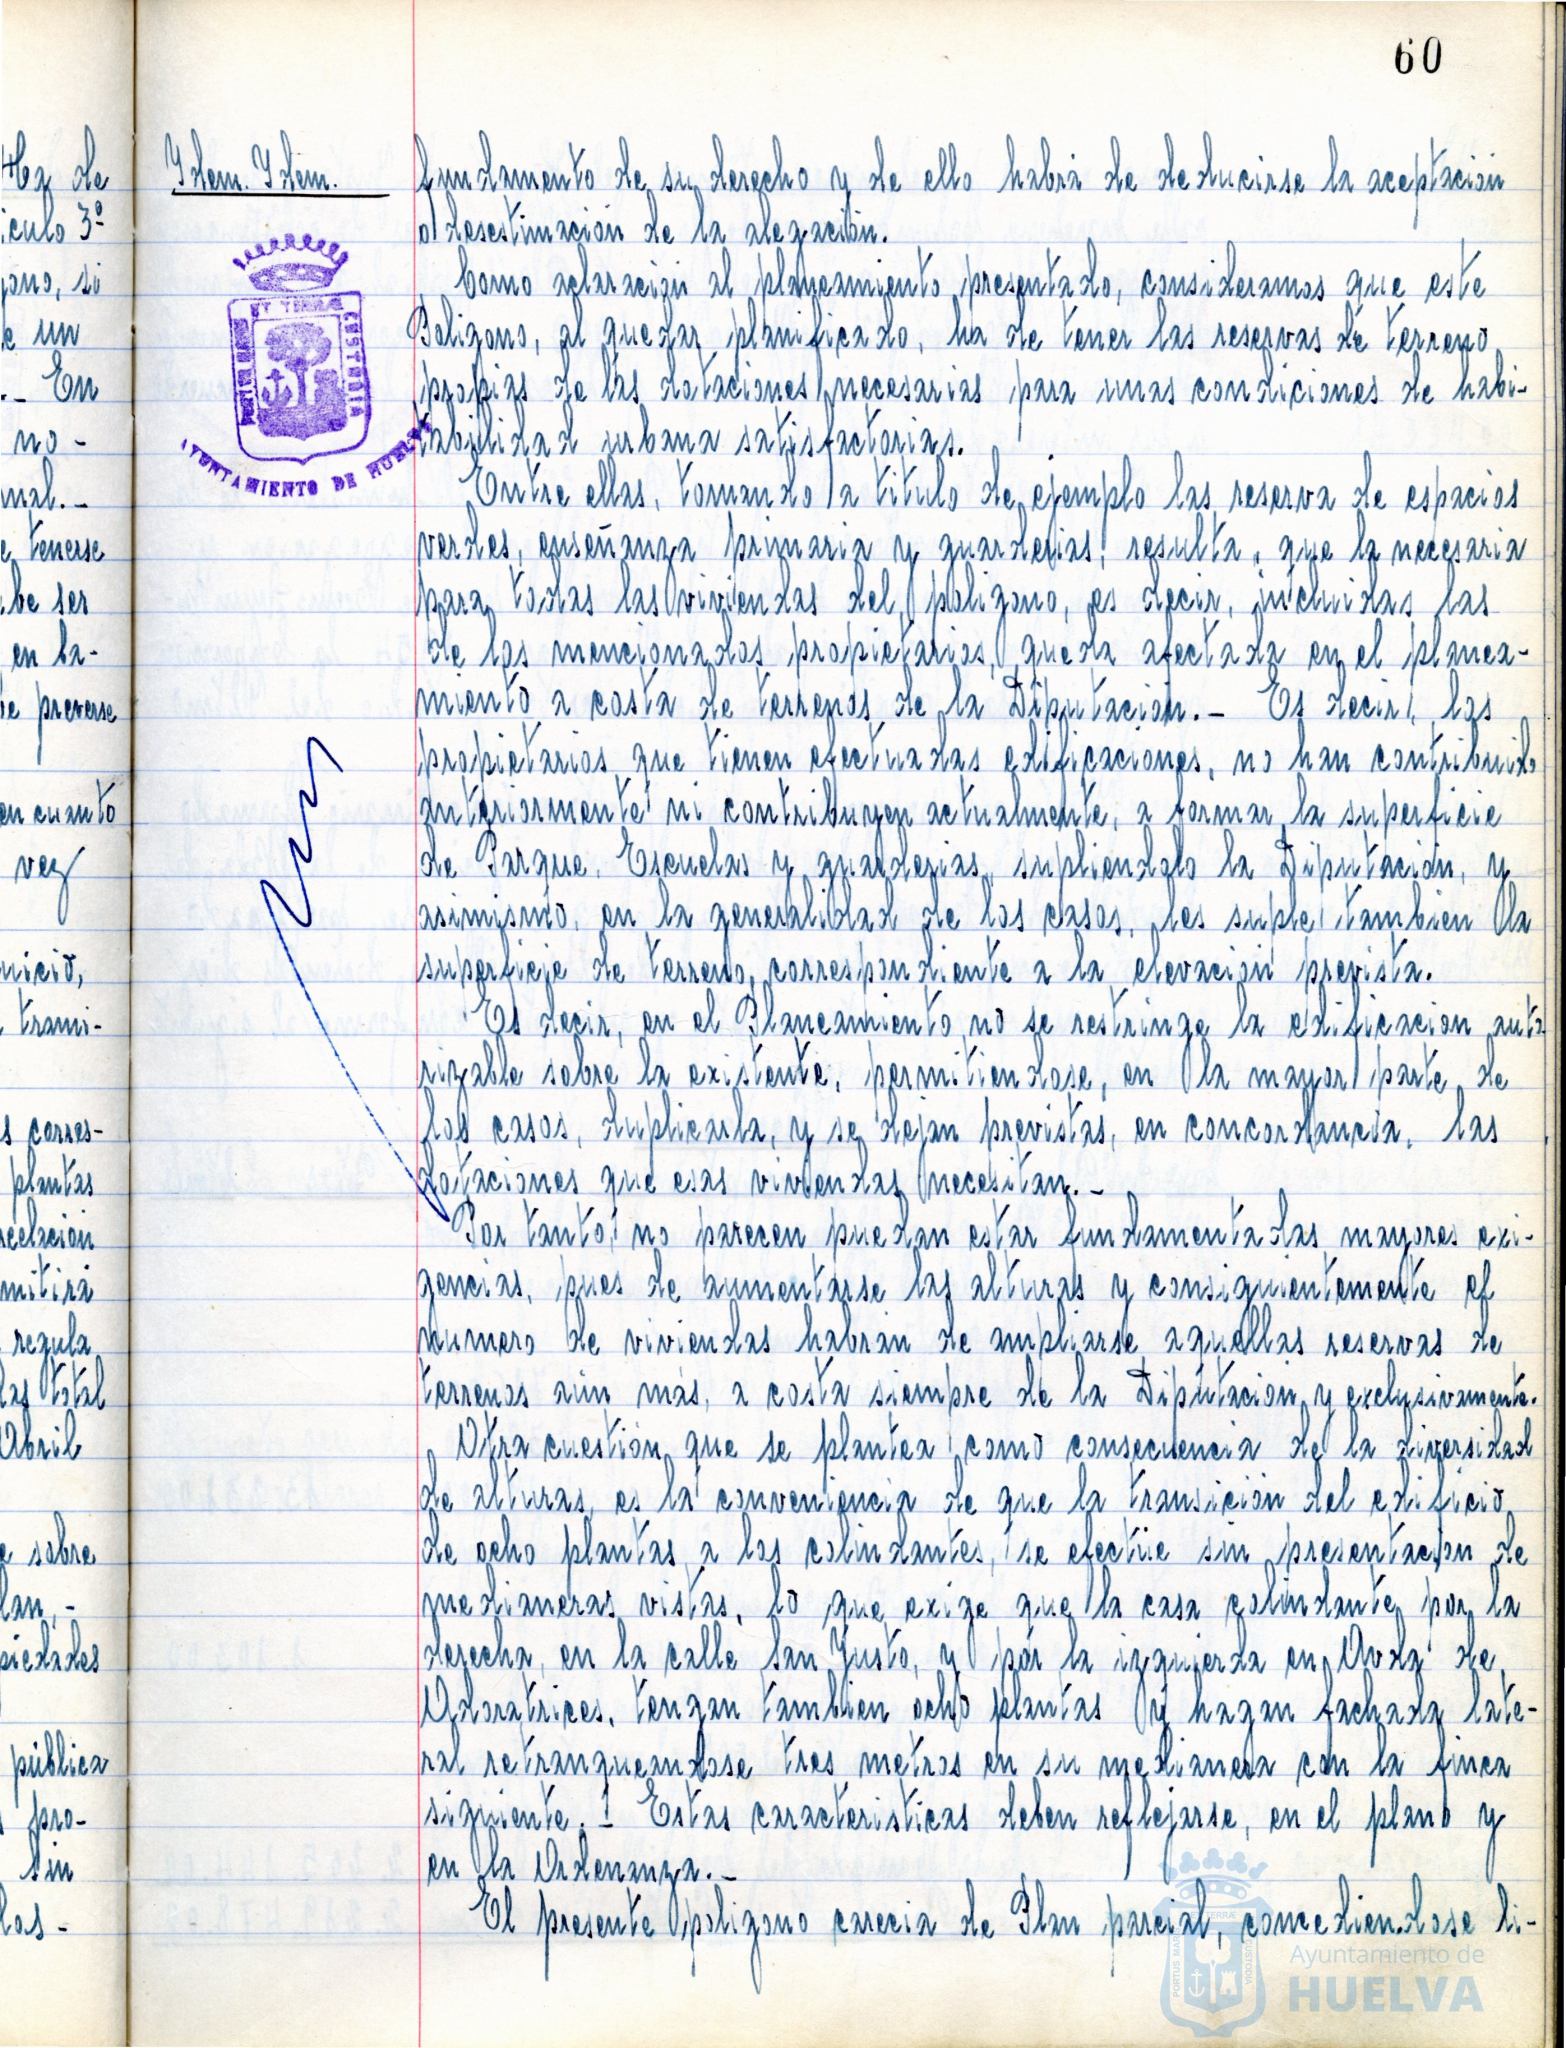 60
Ha de
ículo 3º
gono, si
e un
.- En
no-
mal.-
e tenerse
abe ser
en la-
be preverse
en cuanto
vez
nicio,
trami-
s corres-
plantas
rcelación
mitirá
regula
las total
Abril
e sobre
lan,-
piedades
pública
pro-
sin
los-
Idem. Idem.
PORTUS MARIS ET TERRAE CUSTODIA
AYUNTAMIENTO DE HUELVA
fundamento de su derecho y de ello habrá de deducirse la aceptación
o desestimación de la alegación.
Como aclaración al planeamiento presentado, consideramos que este
Poligono, al quedar planificado, ha de tener las reservas de terreno
propias de las dotaciones necesarias para unas condiciones de habi-
tabilidad urbana satisfactorias.
Entre ellas, tomando a titulo de ejemplo las reserva de espacios
verdes, enseñanza primaria y guarderias, resulta, que la necesaria
para todas las viviendas del poligono, es decir, incluidas las
de los mencionados propietarios, queda afectada en el planea-
miento a costa de terrenos de la Diputación.- Es decir, los
propietarios que tienen efectuadas edificaciones, no han contribuido
anteriormente ni contribuyen actualmente, a formar la superficie
de Parque, Escuelas y guarderias, supliendolo la Diputación, y
asimismo, en la generalidad de los casos, les suple tambien la
superficie de terreno, correspondiente a la elevación prevista.
Es decir, en el Planeamiento no se restringe la edificacion auto
rizable sobre la existente, permitiendose, en la mayor parte de
los casos, duplicarla, y se dejan previstas, en concordancia, las
dotaciones que esas viviendas necesitan.-
Por tanto, no parecen puedan estar fundamentadas mayores exi-
gencias, pues de aumentarse las alturas y consiguientemente el
numero de viviendas habrán de ampliarse aquellas reservas de
terrenos aún más, a costa siempre de la Diputación y exclusivamente.
Otra cuestión que se plantea como consecuencia de la diversidad
de alturas, es la conveniencia de que la transición del edificio
de ocho plantas a los colindantes, se efectúe sin presentacion de
medianeras vistas, lo que exige que la casa colindante por la
derecha, en la calle San Justo, y por la izquierda en Avda de
Adoratrices, tengan tambien ocho plantas y hagan fachada late-
ral retranqueandose tres metros en su medianera con la finca
siguiente.- Estas caracteristicas deben reflejarse, en el plano y
en la Ordenanza.-
El presente poligono carecia de Plan parcial, concediendose li-
PORTUS MARIS ET TERRAE CUSTODIA
Ayuntamiento de
HUELVA